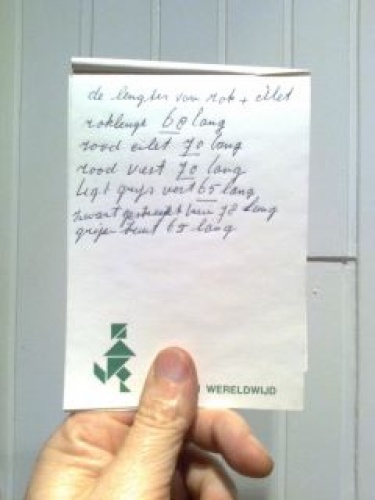 de lengten van rok + cilet
roklengte 68 lang
rood cilet 70 lang
rood vest 70 lang
ligt grijs vest 65 lang
zwart gestreept 78 lang
65 lang
WERELDWIJD